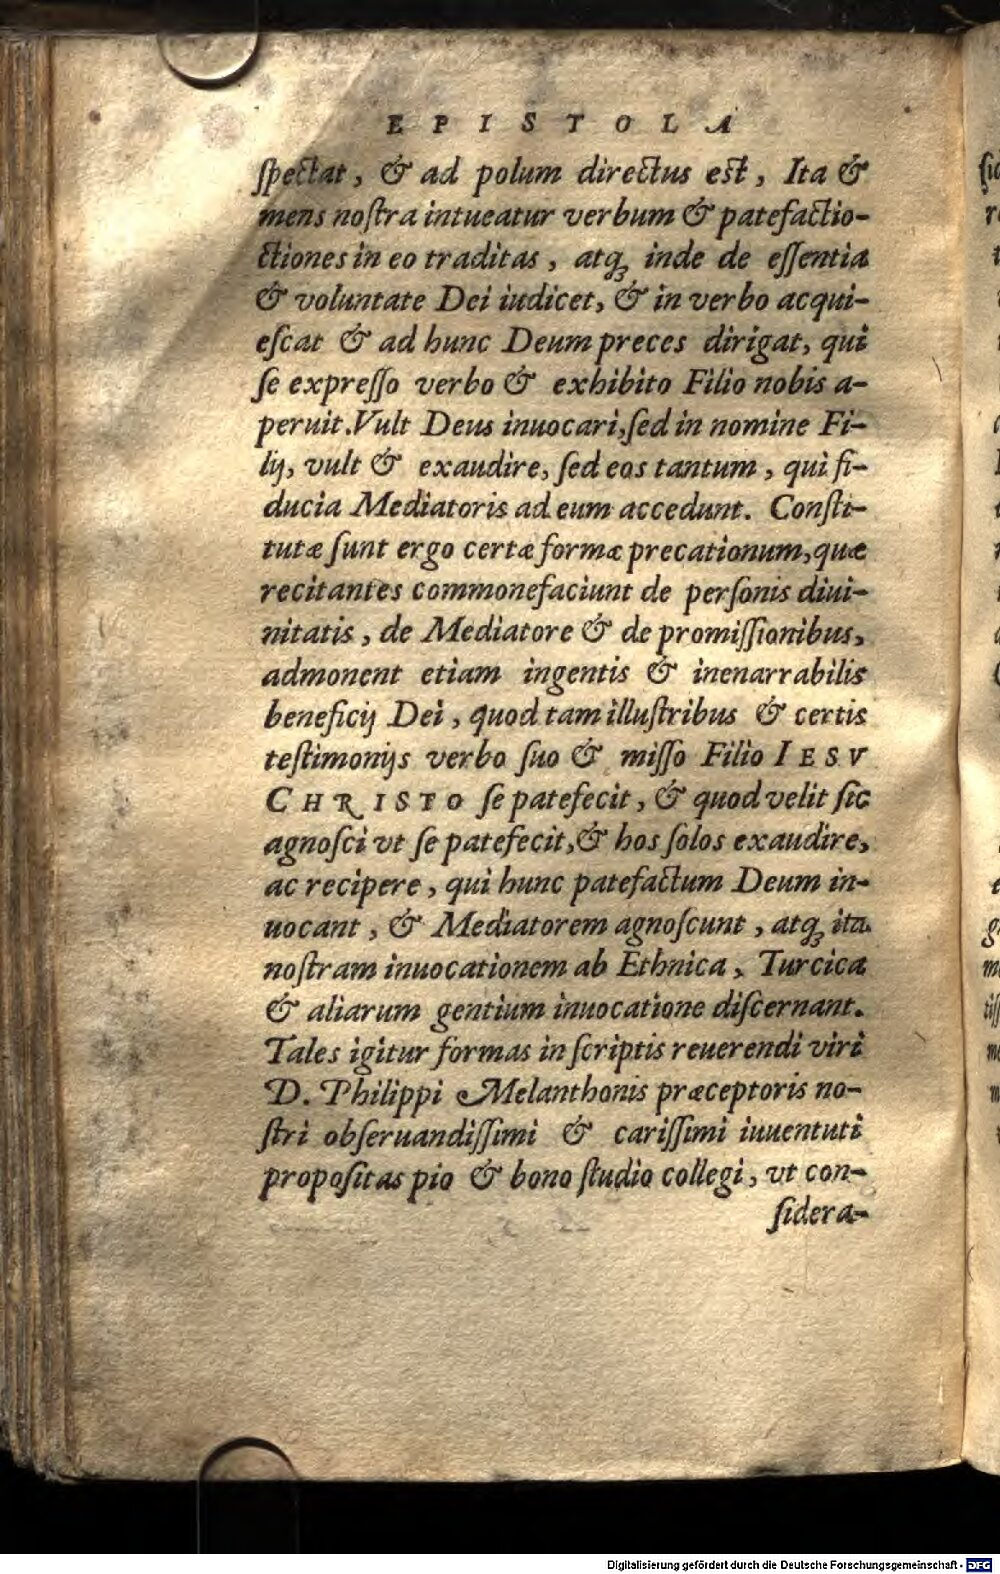 EPISTOLA
ſpectat, & ad polum directus est, Ita &
mens noſtra intueatur verbum & patefactio-
ctiones in eo traditas, atq; inde de eſſentia
& voluntate Dei iudicet, & in verbo acqui-
eſcat & ad hunc Deum preces dirigat, qui
ſe expreſſo verbo & exhibito Filio nobis a-
peruit. Vult Deus inuocari, ſed in nomine Fi-
lij, vult & exaudire, ſed eos tantum, qui fi-
ducia Mediatoris ad eum accedunt. Conſti-
tutæ ſunt ergo certæ formæ precationum, quæ
recitantes commonefaciunt de perſonis diui-
nitatis, de Mediatore & de promiſſionibus,
admonent etiam ingentis & inenarrabilis
beneficij Dei, quod tam illuſtribus & certis
teſtimonijs verbo ſuo & miſſo Filio IESV
CHRISTO ſe patefecit, & quod velit ſic
agnoſci vt ſe patefecit, & hos ſolos exaudire,
ac recipere, qui hunc patefactum Deum in-
uocant, & Mediatorem agnoſcunt, atq; ita
noſtram inuocationem ab Ethnica, Turcica
& aliarum gentium inuocatione diſcernant.
Tales igitur formas in ſcriptis reuerendi viri
D. Philippi Melanthonis præceptoris no-
ſtri obſeruandiſſimi & cariſſimi iuuentuti
propoſitas pio & bono ſtudio collegi, vt con-
ſidera-
Digitalisierung gefördert durch die Deutsche Forschungsgemeinschaft - DFG